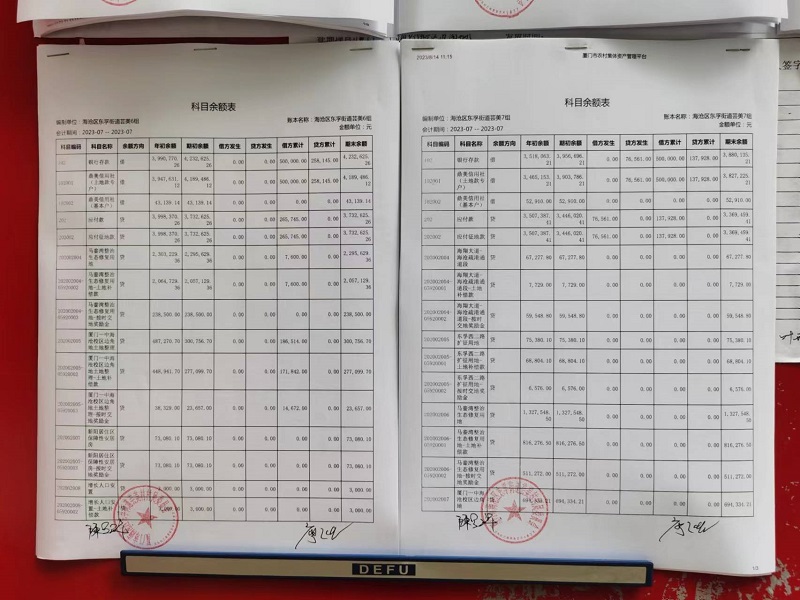 科目余额表
编制单位：海沧区东孚街道芸美6组
账本名称：海沧区东孚街道芸美6组
会计期间：2023-07 -- 2023-07
金额单位：元
科目编码 科目名称 余额方向 年初余额 期初余额 借方发生 贷方发生 借方累计 贷方累计 期末余额
银行存款 借 0.00 0.00 500,000.00 258,145.00 4,232,625.26
102001 鼎美信用社（土地款专户） 借 0.00 0.00 500,000.00 258,145.00 4,189,486.12
102002 鼎美信用社（基本户） 借 43,139.14 43,139.14 0.00 0.00 0.00 0.00 43,139.14
202 应付款 贷 3,998,370.26 3,732,625.26 0.00 0.00 265,745.00 0.00 3,732,625.26
202002 应付征地款 贷 3,998,370.26 3,732,625.26 0.00 0.00 265,745.00 0.00 3,732,625.26
202002004 马銮湾整治生态修复用地 贷 2,303,229.36 2,295,629.36 0.00 0.00 7,600.00 0.00 2,295,629.36
马銮湾整治生态修复用地-土地补偿款 贷 2,064,729.36 2,057,129.36 0.00 0.00 7,600.00 0.00 2,057,129.36
马銮湾整治生态修复用地-按时交地奖励金 贷 238,500.00 238,500.00 0.00 0.00 0.00 0.00 238,500.00
202002005 厦门一中海沧校区边角地土地整理 贷 487,270.70 300,756.70 0.00 0.00 186,514.00 0.00 300,756.70
厦门一中海沧校区边角地土地整理-土地补偿款 贷 448,941.70 277,099.70 0.00 0.00 171,842.00 0.00 277,099.70
厦门一中海沧校区边角地土地整理-按时交地奖励金 贷 38,329.00 23,657.00 0.00 0.00 14,672.00 0.00 23,657.00
202002007 新阳居住区保障性安居房 贷 73,080.10 73,080.10 0.00 0.00 0.00 0.00 73,080.10
新阳居住区保障性安居房-按时交地奖励金 贷 73,080.10 73,080.10 0.00 0.00 0.00 0.00 73,080.10
202002008 增长人口安置 贷 3,000.00 3,000.00 0.00 0.00 0.00 0.00 3,000.00
增长人口安置-土地补偿款 贷 3,000.00 0.00 0.00 0.00 0.00 3,000.00
2023/8/14 11:15
厦门市农村集体资产管理平台
科目余额表
编制单位：海沧区东孚街道芸美7组
账本名称：海沧区东孚街道芸美7组
会计期间：2023-07 -- 2023-07
金额单位：元
科目编码 科目名称 余额方向 年初余额 期初余额 借方发生 贷方发生 借方累计 贷方累计 期末余额
银行存款 借 3,518,063.21 3,956,696.21 0.00 76,561.00 500,000.00 137,928.00 3,880,135.21
102001 鼎美信用社（土地款专户） 借 3,465,153.21 3,903,786.21 0.00 76,561.00 500,000.00 137,928.00 3,827,225.21
102002 鼎美信用社（基本户） 借 52,910.00 52,910.00 0.00 0.00 0.00 0.00 52,910.00
202 应付款 贷 3,507,387.41 3,446,020.41 76,561.00 0.00 137,928.00 0.00 3,369,459.41
202002 应付征地款 贷 3,507,387.41 3,446,020.41 76,561.00 0.00 137,928.00 0.00 3,369,459.41
202002004 海翔大道-海沧疏港通道段 贷 67,277.80 67,277.80 0.00 0.00 0.00 0.00 67,277.80
海翔大道-海沧疏港通道段-土地补偿款 贷 7,729.00 7,729.00 0.00 0.00 0.00 0.00 7,729.00
海翔大道-海沧疏港通道段-按时交地奖励金 贷 59,548.80 59,548.80 0.00 0.00 0.00 0.00 59,548.80
202002005 东孚西二路扩征用地 贷 75,380.10 75,380.10 0.00 0.00 0.00 0.00 75,380.10
东孚西二路扩征用地-土地补偿款 贷 68,804.10 68,804.10 0.00 0.00 0.00 0.00 68,804.10
东孚西二路扩征用地-按时交地奖励金 贷 6,576.00 6,576.00 0.00 0.00 0.00 0.00 6,576.00
202002006 马銮湾整治生态修复用地 贷 1,327,548.50 1,327,548.50 0.00 0.00 0.00 0.00 1,327,548.50
马銮湾整治生态修复用地-土地补偿款 贷 816,276.50 816,276.50 0.00 0.00 0.00 0.00 816,276.50
马銮湾整治生态修复用地-按时交地奖励金 贷 511,272.00 511,272.00 0.00 0.00 0.00 0.00 511,272.00
202002007 厦门一中海沧校区边角地土地整理 贷 694,534.21 694,534.21 0.00 0.00 0.00 0.00 694,534.21
1/3
DEFU